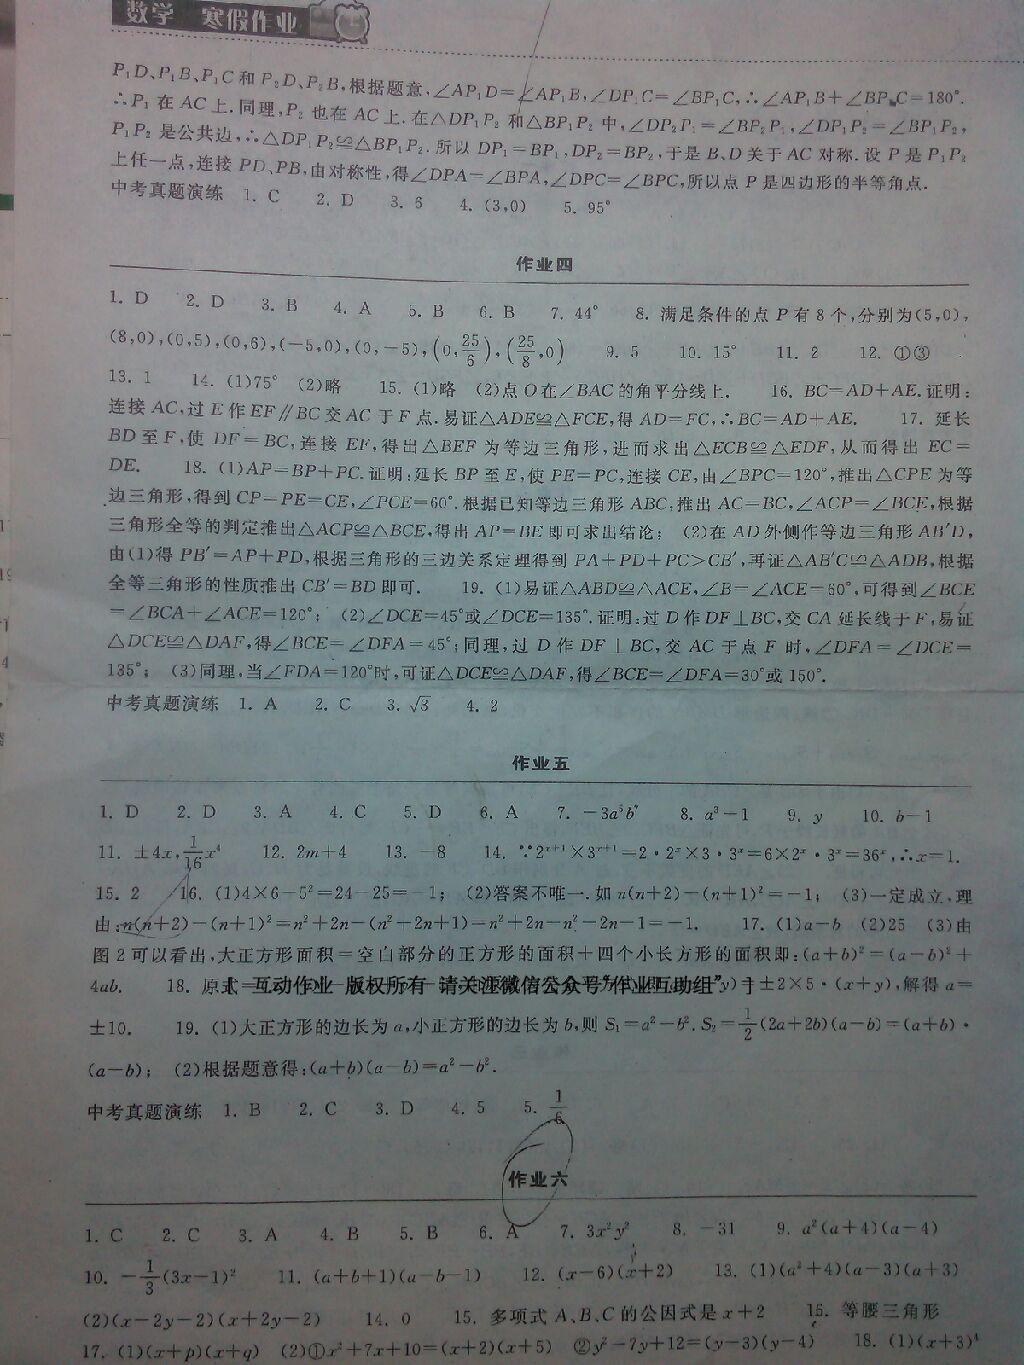 数学 寒假作业
P₁D、P₁B、P₁C和P₂D、P₂B,根据题意,∠AP₁D=∠AP₁B,∠DP₁C=∠BP₁C,∴∠AP₁B+∠BP₁C=180°.
∴P₁在AC上.同理,P₂也在AC上.在△DP₁P₂和△BP₁P₂中,∠DP₂P₁=∠BP₂P₁,∠DP₁P₂=∠BP₁P₂,
P₁P₂是公共边,∴△DP₁P₂≌△BP₁P₂.所以DP₁=BP₁,DP₂=BP₂,于是B、D关于AC对称.设P是P₁P₂
上任一点,连接PD、PB,由对称性,得∠DPA=∠BPA,∠DPC=∠BPC,所以点P是四边形的半等角点.
中考真题演练 1. C 2. D 3. 6 4. (3,0) 5. 95°
作业四
1. D 2. D 3. B 4. A 5. B 6. B 7. 44° 8. 满足条件的点P有8个,分别为(5,0),
(8,0),(0,5),(0,6),(-5,0),(0,-5),(0,25/6),(25/8,0) 9. 5 10. 15° 11. 2 12. ①③
13. 1 14. (1)75° (2)略 15. (1)略 (2)点O在∠BAC的角平分线上. 16. BC=AD+AE.证明:
连接AC,过E作EF∥BC交AC于F点.易证△ADE≌△FCE,得AD=FC,∴BC=AD+AE. 17. 延长
BD至F,使DF=BC,连接EF,得出△BEF为等边三角形,进而求出△ECB≌△EDF,从而得出EC=
DE. 18. (1)AP=BP+PC.证明:延长BP至E,使PE=PC,连接CE,由∠BPC=120°,推出△CPE为等
边三角形,得到CP=PE=CE,∠PCE=60°.根据已知等边三角形ABC,推出AC=BC,∠ACP=∠BCE,根据
三角形全等的判定推出△ACP≌△BCE,得出AP=BE即可求出结论; (2)在AD外侧作等边三角形AB′D,
由(1)得PB′=AP+PD,根据三角形的三边关系定理得到PA+PD+PC>CB′,再证△AB′C≌△ADB,根据
全等三角形的性质推出CB′=BD即可. 19. (1)易证△ABD≌△ACE,∠B=∠ACE=60°,可得到∠BCE
=∠BCA+∠ACE=120°; (2)∠DCE=45°或∠DCE=135°.证明:过D作DF⊥BC,交CA延长线于F,易证
△DCE≌△DAF,得∠BCE=∠DFA=45°;同理,过D作DF⊥BC,交AC于点F时,∠DFA=∠DCE=
135°; (3)同理,当∠FDA=120°时,可证△DCE≌△DAF,得∠BCE=∠DFA=30°或150°.
中考真题演练 1. A 2. C 3. √3 4. 2
作业五
1. D 2. D 3. A 4. C 5. D 6. A 7. -3a⁵b⁷ 8. a³-1 9. y 10. b-1
11. ±4x,1/16x⁴ 12. 2m+4 13. -8 14. ∵2ˣ⁺¹×3ˣ⁺¹=2·2ˣ×3·3ˣ=6×2ˣ·3ˣ=36ˣ,∴x=1.
15. 2 16. (1)4×6-5²=24-25=-1; (2)答案不唯一.如n(n+2)-(n+1)²=-1; (3)一定成立,理
由:n(n+2)-(n+1)²=n²+2n-(n²+2n+1)=n²+2n-n²-2n-1=-1. 17. (1)a-b (2)25 (3)由
图2可以看出,大正方形面积=空白部分的正方形的面积+四个小长方形的面积即:(a+b)²=(a-b)²+
4ab. 18. 原式= 【互动作业 版权所有 请关注微信公众号“作业互助组”】 y)=±2×5·(x+y),解得a=
±10. 19. (1)大正方形的边长为a,小正方形的边长为b,则S₁=a²-b².S₂=1/2(2a+2b)(a-b)=(a+b)·
(a-b); (2)根据题意得:(a+b)(a-b)=a²-b².
中考真题演练 1. B 2. C 3. D 4. 5 5. 1/6
作业六
1. C 2. C 3. A 4. B 5. B 6. A 7. 3x²y² 8. -31 9. a²(a+4)(a-4)
10. -1/3(3x-1)² 11. (a+b+1)(a-b-1) 12. (x-6)(x+2) 13. (1)(a²+4)(a-3)(a+3)
(2)(x-2y-2)(x+2y-2) 14. 0 15. 多项式A、B、C的公因式是x+2 16. 等腰三角形
17. (1)(x+p)(x+q) (2)①x²+7x+10=(x+2)(x+5) ②y²-7y+12=(y-3)(y-4) 18. (1)(x+3)⁴